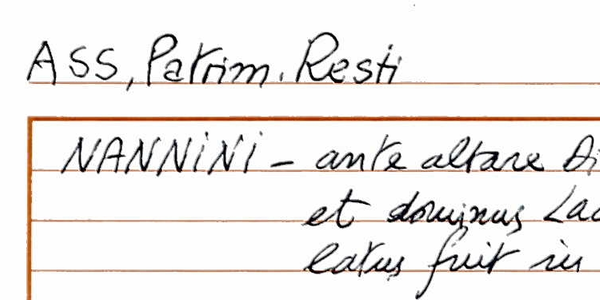 ASS, Patrim. Resti
NANNINI - ante altare
et dominus
latus fuit in